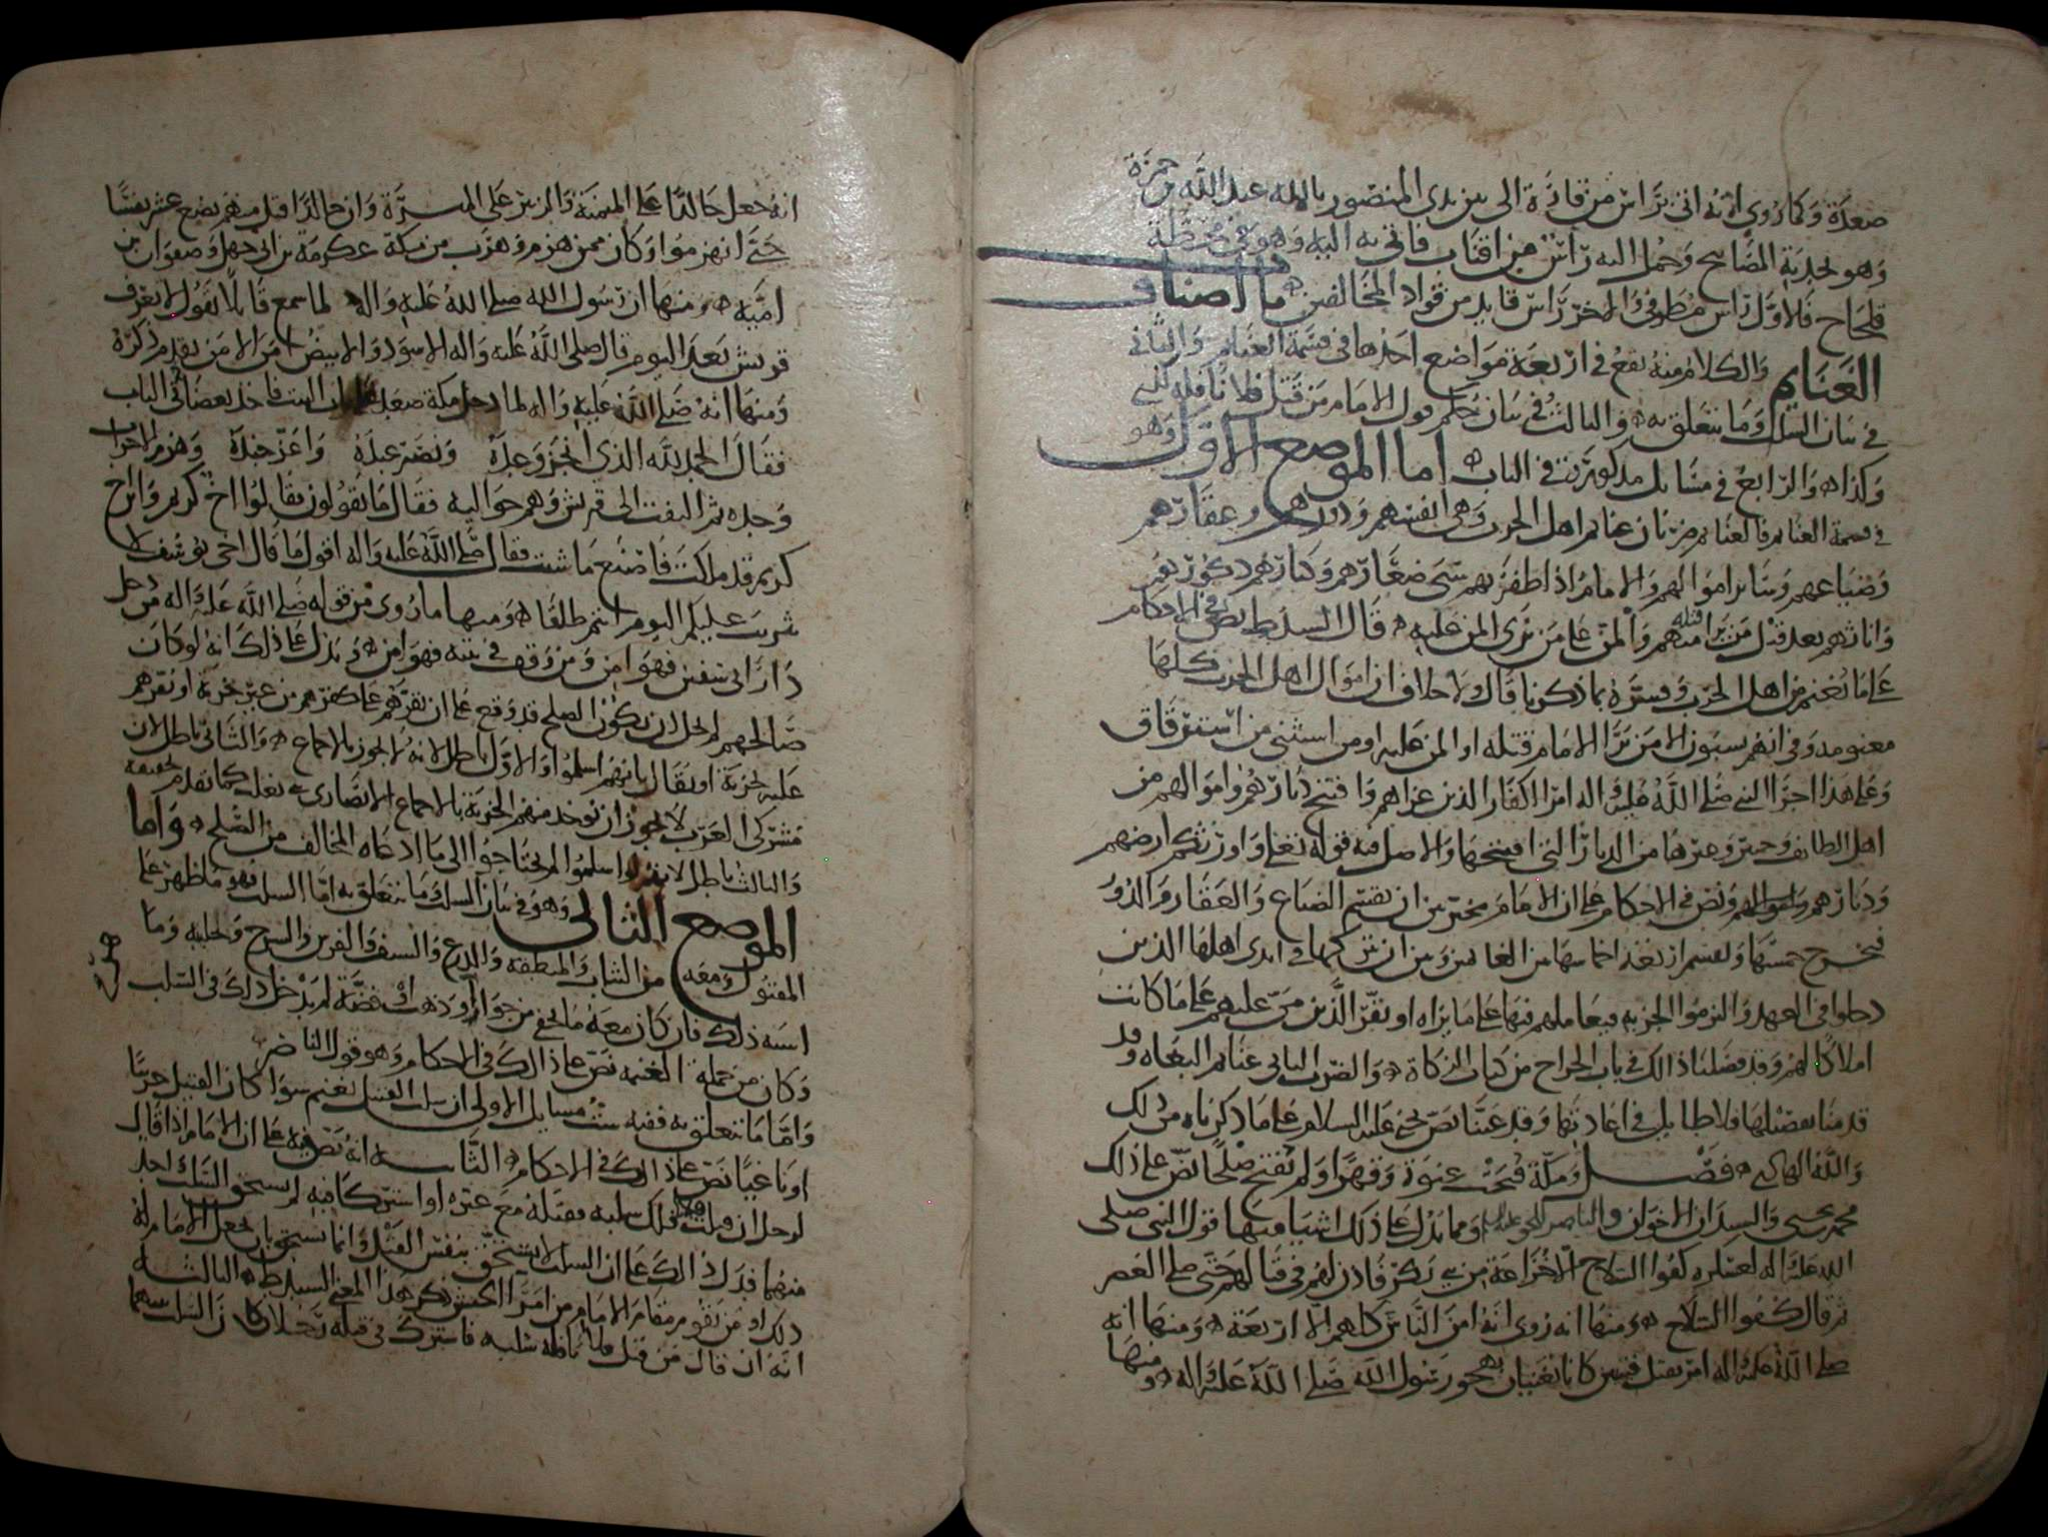 صعدة وكما روي انه اتي براس من قارة الى بين يدي المنصور بالله عبد الله بن حمزة
وهو بجدبة المصابيح وحمل اليه راس من اقتاب فاتي به اليه وهو في محطة
فلحاح فالأول راس مطرفي والاخر راس قايد من قواد المخالفين ما اصناف
الغنايم والكلام منه يقع في اربعة مواضع احدها في قسمة الغنايم والثاني
في بيان السلب وما يتعلق به والثالث في بيان حكم قول الامام من قتل فلانا فله كذى
وكذا والرابع في مسايل مذكورة في الباب اما الموضع الاول وهو
في قسمة الغنايم فالغنايم ضربان غنايم اهل الحرب وهي انفسهم ودورهم وعقارهم
وضياعهم وساير اموالهم والامام اذا ظفر بهم سبى صغارهم وكبارهم ذكورهم
واناثهم بعد قتل من يرا قتله منهم والمن على من يرى المن عليه قال السيد ط نص في الاحكام
على ما يغنم من اهل الحرب وفسره بما ذكرنا قال ولا خلاف ان اموال اهل الحرب كلها
مغنومة وفي انهم يسبون الا من يرا الامام قتله او المن عليه او من استثني من استرقاق
وعلى هذا اجرا النبي صلى الله عليه واله امر الكفار الذين غزاهم وافتتح ديارهم واموالهم من
اهل الطائف وخيبر وغيرها من الديار التي افتتحها والاصل فيه قوله تعالى واورثكم ارضهم
وديارهم واموالهم ونص في الاحكام على ان الامام مخير بين ان يقسم الضياع والعقار والدور
فيخرج خمسها ويقسم اربعة اخماسها بين الغانمين وبين ان يتركها في ايدي اهلها الذين
دخلوا في العهد والتزموا الجزية فيعاملهم فيها على ما يراه او يقر الذين من عليهم على ما كانت
املاكا لهم وقد فصلنا ذلك في باب الخراج من كتاب الزكاة والضرب الثاني غنايم البغاه وقد
قدمنا تفصيلها فلا طايل في اعادتها وقد عينا نص يحيى عليه السلام على ما ذكرناه من ذلك
والله الهادي فصل ومكة فتحت عنوة وقهرا ولم تفتح صلحا نص على ذلك
محمد بن يحيى والسيدان الاخوان والناصر للحق عليه السلام ومما يدل على ذلك اشيا منها قول النبي صلى
الله عليه واله لعسكره كفوا السلاح الا خزاعة من بني بكر فاذن لهم في قتالهم حتى صلى العصر
ثم قال كفوا السلاح ومنها انه روي انه امن الناس كلهم الا اربعة ومنها انه
صلى الله عليه واله امر بقتل قينتين كانا تغنيان بهجو رسول الله صلى الله عليه واله ومنها
انه جعل خالدا على الميمنة والزبير على الميسرة وان خالدا قتل منهم بضع عشر نفسا
حتى انهزموا وكان ممن هزم وهرب من مكة عكرمة بن ابي جهل وصفوان بن
امية ومنها ان رسول الله صلى الله عليه واله لما سمع قايلا يقول لا تعرف
قريش بعد اليوم قال صلى الله عليه واله الاسود والابيض امن الا من تقدم ذكره
ومنها انه صلى الله عليه واله لما دخل مكة صعد البيت فاخذ بعضادتي الباب
فقال الحمد لله الذي انجز وعده ونصر عبده واعز جنده وهزم الاحزاب
وحده ثم التفت الى قريش وهم حواليه فقال ما تقولون فقالوا اخ كريم وابن اخ
كريم قد ملكت فاصنع ما شئت فقال صلى الله عليه واله اقول ما قال اخي يوسف لا
تثريب عليكم اليوم انتم طلقا ومنها ما روي من قوله صلى الله عليه واله من دخل
دار ابي سفين فهو امن ومن وقف في بيته فهو امن ويدل على ذلك انه لو كان
صالحهم لم يخل ان يكون الصلح قد وقع على ان يقرهم على كفرهم من غير جزية او يقرهم
على جزية او يقال بانهم اسلموا والاول باطل لانه لا يجوز بالاجماع والثاني باطل لان
مشركي العرب لا يجوز ان توخذ منهم الجزية بالاجماع الا نصارى بني تغلب كما تقدم تحقيقه
والثالث باطل لانهم لو اسلموا لم يحتاجوا الى ما ادعاه المخالف من الصلح واما
الموضع الثاني وهو في بيان السلب وما يتعلق به اما السلب فهو ما ظهر على
المقتول ومعه من الثياب والمنطقة والدرع والسيف والفرس والسرج وحليه وما
اشبه ذلك فان كان معه ما يخفى من جواهر او ذهب او فضة لم يدخل ذلك في السلب
وكان من جملة الغنيمة نص على ذلك في الاحكام وهو قول الناصر
واما ما يتعلق به ففيه ست مسايل الاولى ان سلب القتيل يغنم سوا كان القتيل حربيا
او باغيا نص على ذلك في الاحكام الثانية انه نص فيه على ان الامام اذا قال
لرجل ان قتلت فلانا فلك سلبه فقتله مع غيره او اشتركا فيه لم يستحق السلب احد
منهما فدل ذلك على ان السلب لا يستحق بنفس القتل وانما يستحق بان يجعل الامام له
ذلك او من يقوم مقام الامام من امرا الجيش ذكر هذا المعنى السيد ط الثالثة
انه ان قال من قتل قتيلا فله سلبه فاشترك في قتله رجلان كان السلب بينهما